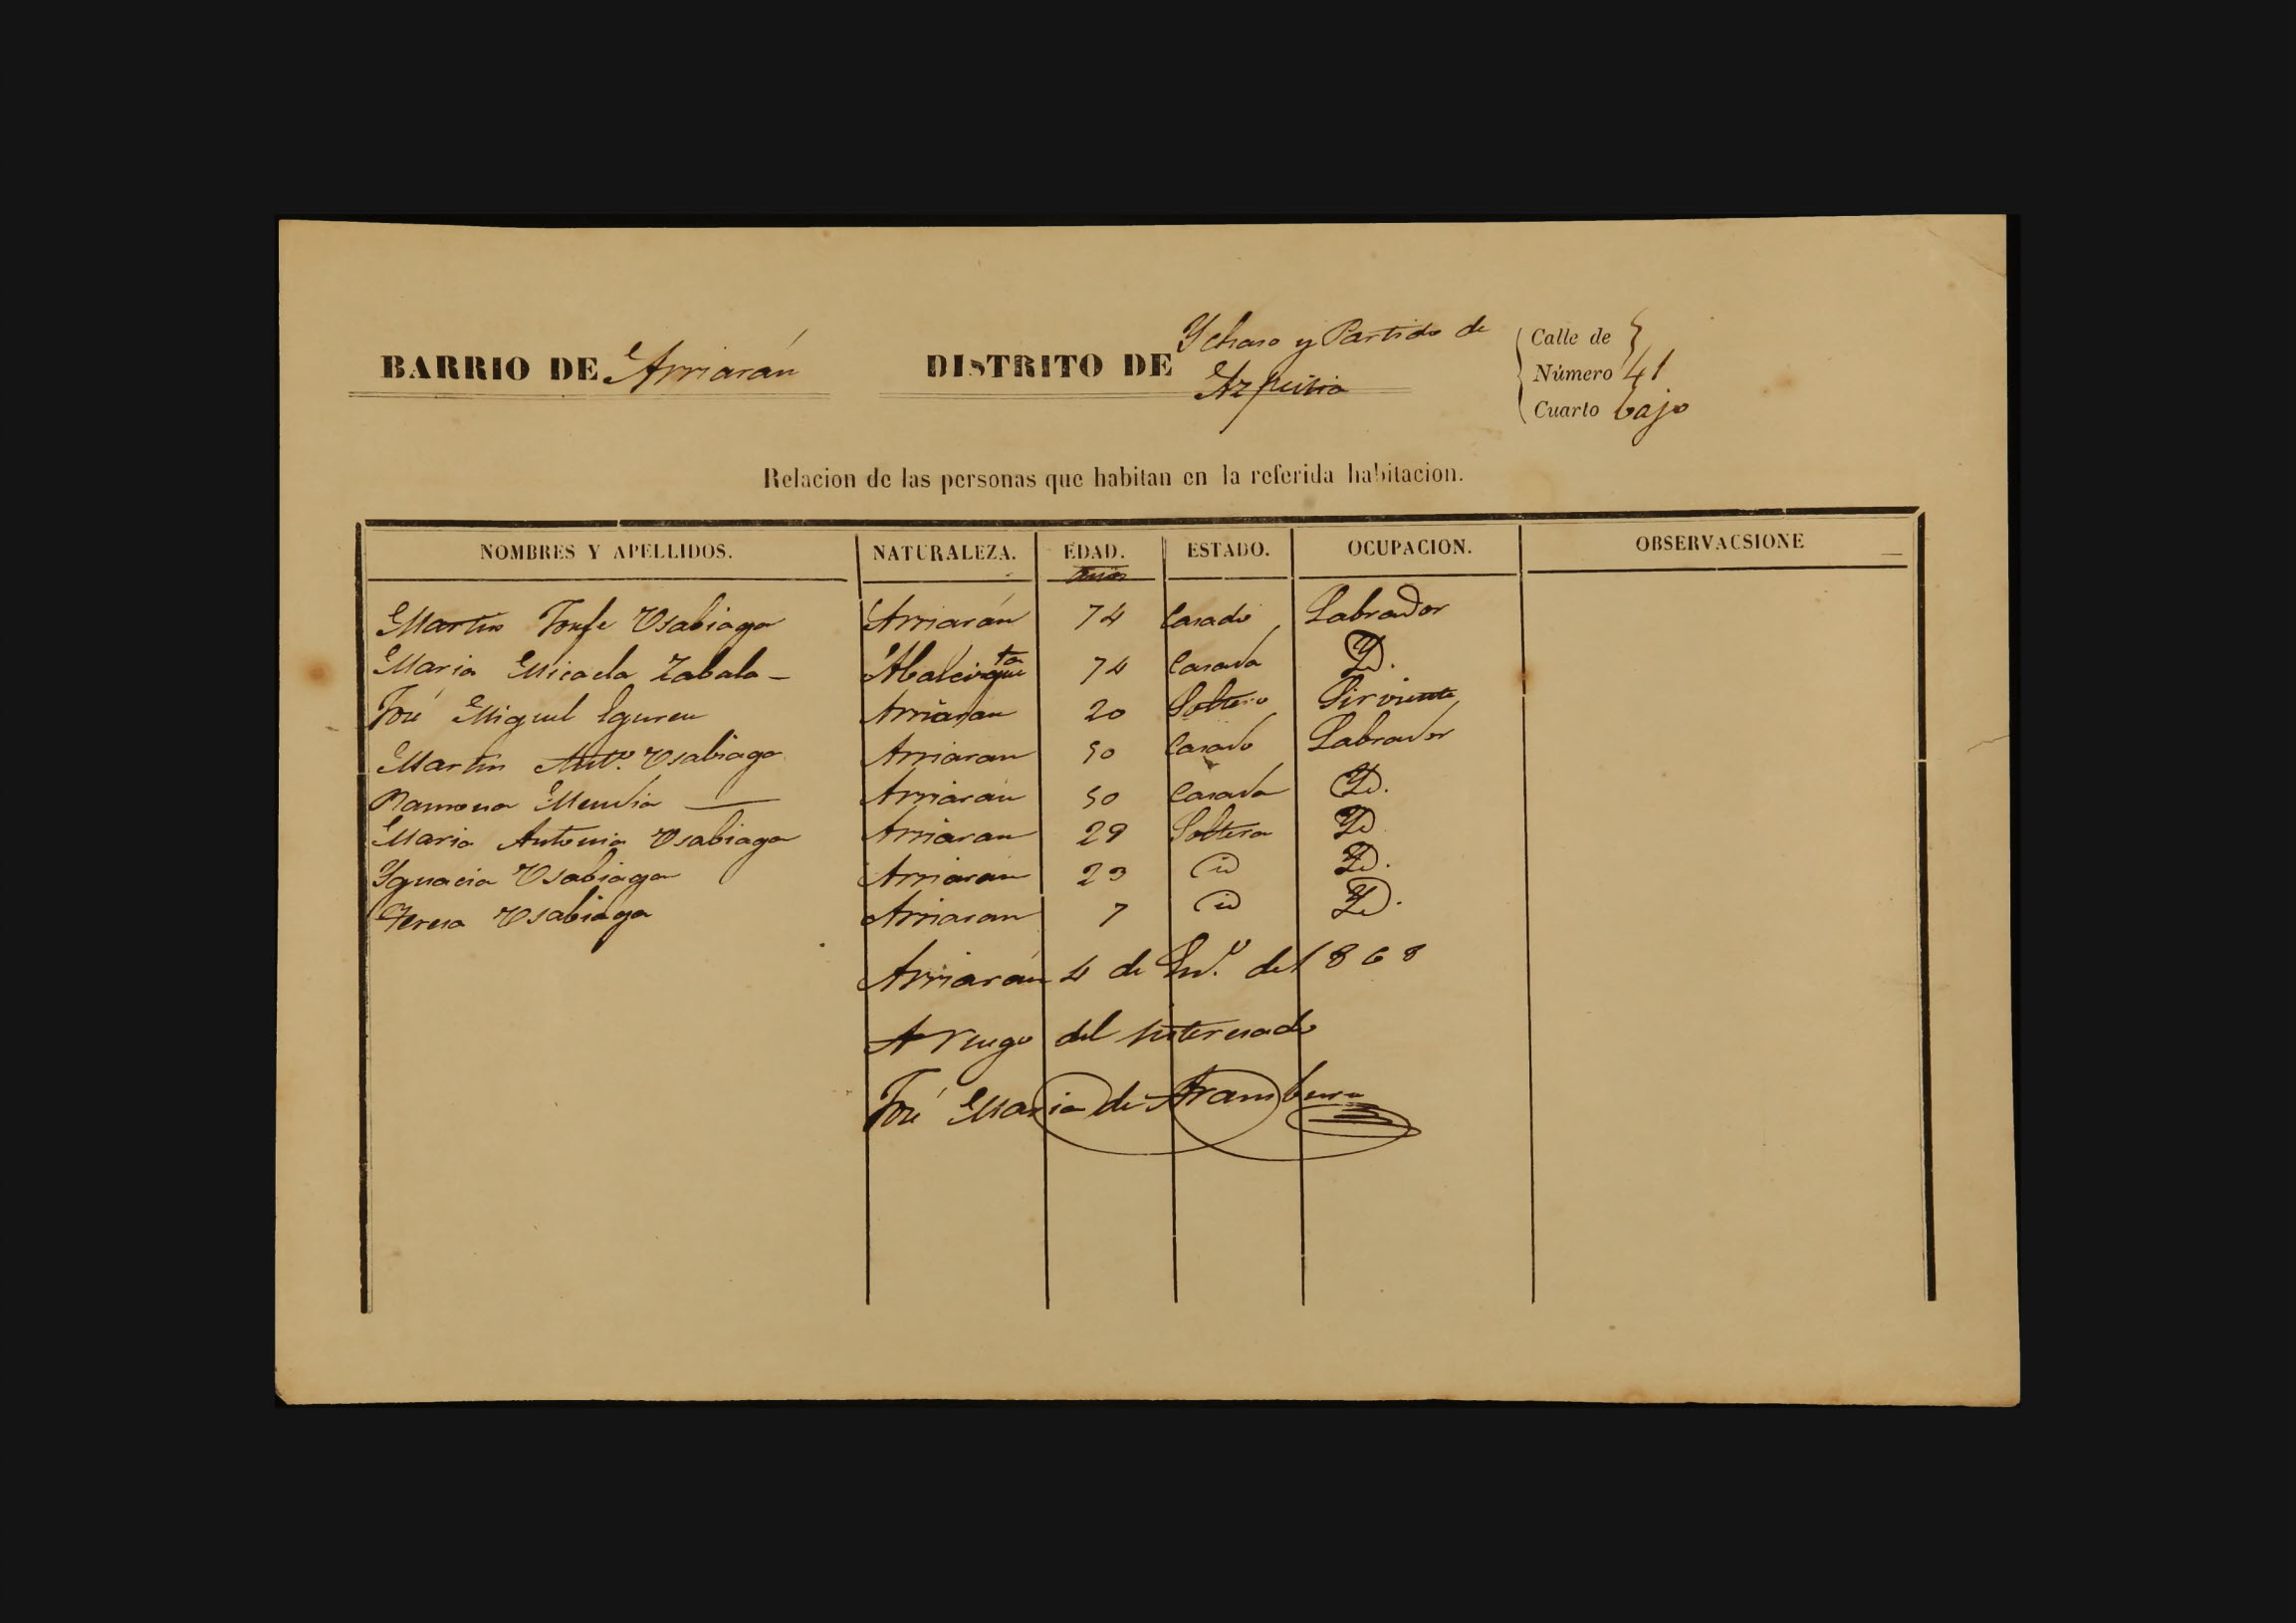 BARRIO DE Arriarán
DISTRITO DE Ychaso y Partido de
Azpeitia
Calle de
Número 41
Cuarto bajo
Relacion de las personas que habitan en la referida habitacion.
NOMBRES Y APELLIDOS. NATURALEZA. EDAD. ESTADO. OCUPACION. OBSERVACSIONE
años
Martin Josfe Usabiaga Arriarán 74 Casado Labrador
Maria Micaela Zabala 74 Casada Yd.
José Miguel Eguren Arriaran 20 Soltero Sirviente
Martin Antº. Usabiaga Arriaran 50 Casado Labrador
Ramona Mendia Arriarán 50 Casada Yd.
Maria Antonia Usabiaga Arriaran 29 Soltera Yd
Ygnacia Usabiaga Arriarán 23 id Yd.
Teresa Usabiaga Arriaran 7 id Yd.
Arriarán 4 de En.º de 1868
A ruego del interesado
José Maria de Aramburu